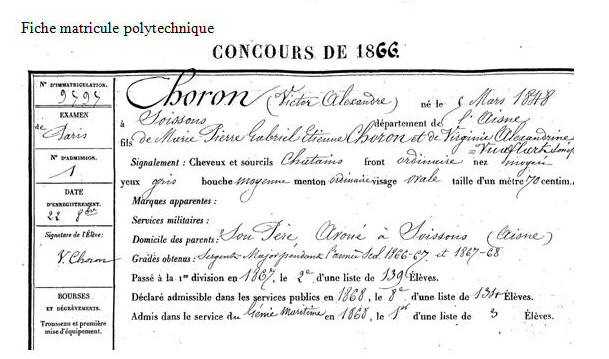 Fiche matricule polytechnique
CONCOURS DE 1866.
N° D'IMMATRICULATION.
9595
EXAMEN
de Paris
N° D'ADMISSION.
1
DATE
D'ENREGISTREMENT.
22 8bre
Signature de l'Élève:
V. Choron
BOURSES
ET DÉGRÈVEMENTS.
Trousseau et première
mise d'équipement.
Choron (Victor Alexandre) né le 5 Mars 1848
à Soissons département de l'Aisne
fils de Marie Pierre Gabriel Etienne Choron et de Virginie Alexandrine
Signalement : Cheveux et sourcils Chatains front ordinaire nez moyen
yeux gris bouche moyenne menton ordinaire visage ovale taille d'un mètre 70 centim.
Marques apparentes :
Services militaires :
Domicile des parents: Son Père Avoué à Soissons (Aisne)
Grades obtenus: Sergent Major pendant l'année Scol. 1866-67 et 1867-68
Passé à la 1re division en 1867, le 2e d'une liste de 139 Élèves.
Déclaré admissible dans les services publics en 1868, le 8e d'une liste de 134 Élèves.
Admis dans le service du Génie Maritime en 1868, le 1er d'une liste de 3 Élèves.